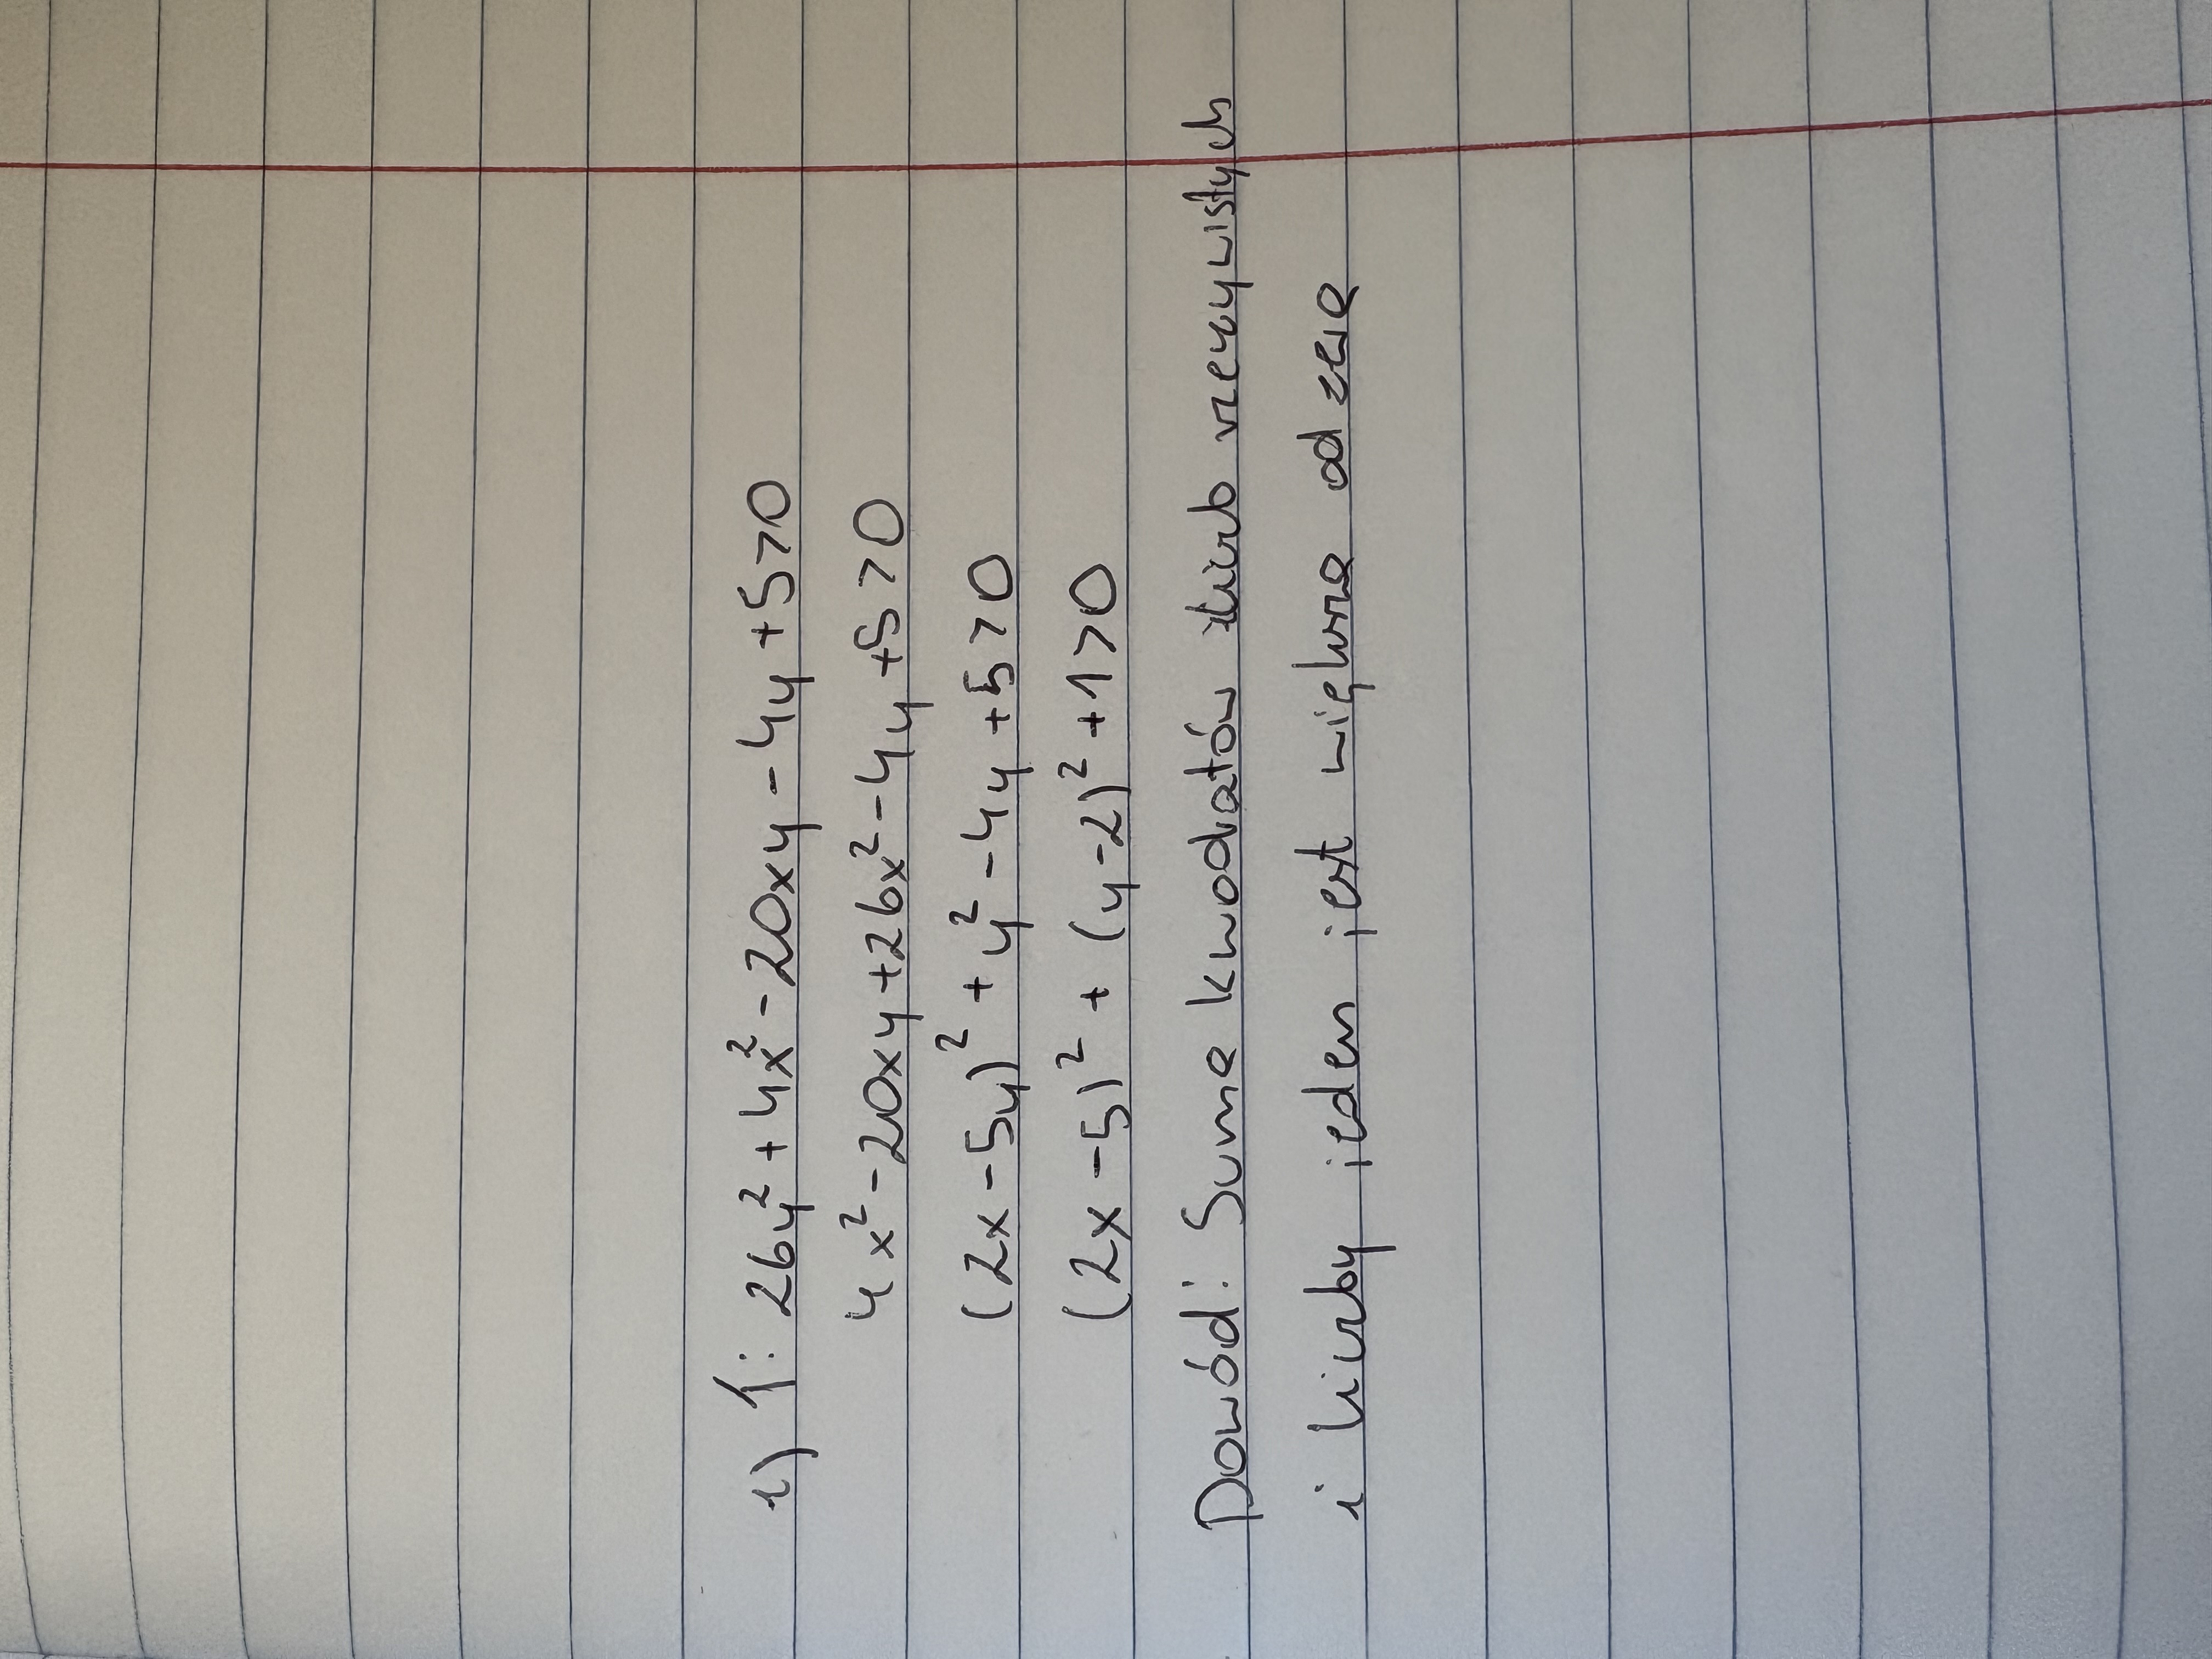 1) f: 26y² + 4x² - 20xy - 4y + 5 > 0
4x² - 20xy + 26x² - 4y + 5 > 0
(2x - 5y)² + y² - 4y + 5 > 0
(2x - 5)² + (y - 2)² + 1 > 0
Dowód: Suma kwadratów liczb rzeczywistych
i liczby jeden jest większa od zera